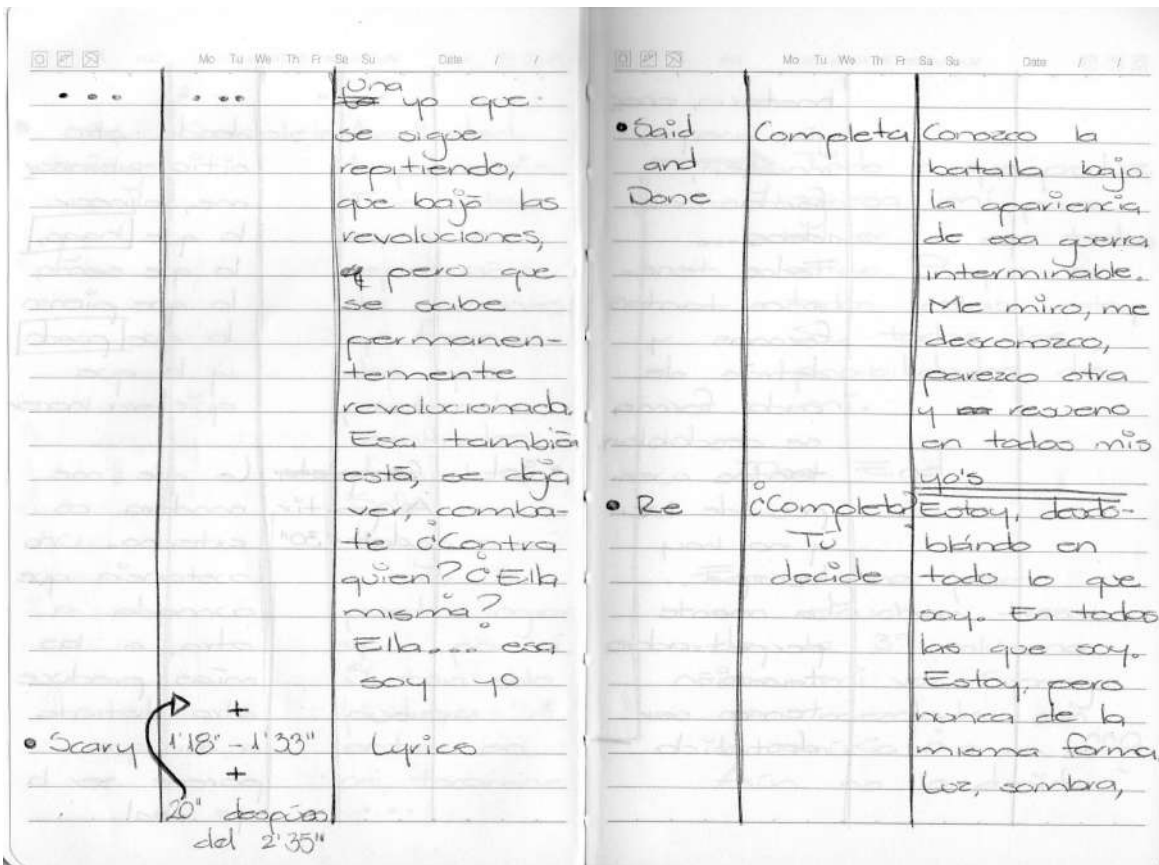 Mo Tu We Th Fr Sa Su Date / /
• • • • • • Una yo que
se sigue
repitiendo,
que bajó las
revoluciones,
pero que
se sabe
permanen-
temente
revolucionada.
Esa también
está, se deja
ver, comba-
te ¿Contra
quien? ¿Ella
misma?
Ella... esa
soy yo
+
• Scary 1'18" - 1'33" Lyrics
+
20" después
del 2'35"
Mo Tu We Th Fr Sa Su Date / /
• Said Completa Conozco la
and batalla bajo
Done la apariencia
de esa guerra
interminable.
Me miro, me
desconozco,
parezco otra
y resueno
en todos mis
yo's
• Re ¿Completa? Estoy, desdo-
Tú blándo en
decide todo lo que
soy. En todas
las que soy.
Estoy, pero
nunca de la
misma forma
Luz, sombra,